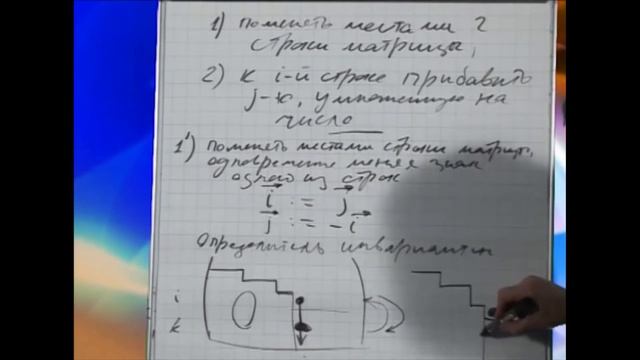 1) поменять местами 2
строки матрицы,
2) к i-й строке прибавить
j-ю, умноженную на
число
1') поменять местами строки матрицы,
одновременно меняя знак
одной из строк
i := j
j := -i
Определитель инвариантен
i
k